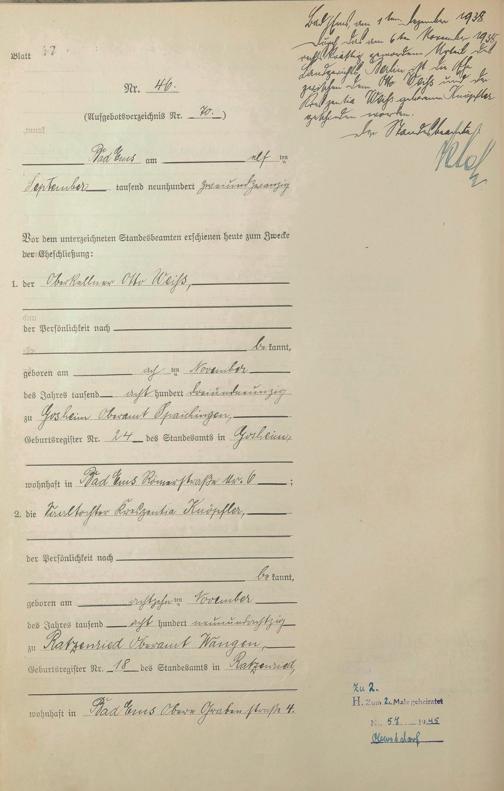 Bad Ems, am 1ten Dezember 1938
Durch das am 6ten November 1938
rechtskräftig gewordene Urteil des
Landgerichts Berlin ist die Ehe
zwischen dem Otto Weiß und der
Kreszentia Weiß geborene Knöpfler
geschieden worden.
Der Standesbeamte
Blatt
Nr. 46.
(Aufgebotsverzeichnis Nr. 70.)
Bad Ems am elf ten
September tausend neunhundert zweiundzwanzig
Vor dem unterzeichneten Standesbeamten erschienen heute zum Zwecke
der Eheschließung:
1. der Oberkellner Otto Weiß,
der Persönlichkeit nach
be kannt,
geboren am ach ten November
des Jahres tausend acht hundert dreiundneunzig
zu Gosheim Oberamt Spaichingen,
Geburtsregister Nr. 24 des Standesamts in Gosheim,
wohnhaft in Bad Ems Römerstraße Nr. 6 ;
2. die Saaltochter Kreszentia Knöpfler,
der Persönlichkeit nach
be kannt,
geboren am achtzehn ten November
des Jahres tausend acht hundert neunundachtzig
zu Ratzenried Oberamt Wangen,
Geburtsregister Nr. 18 des Standesamts in Ratzenried,
wohnhaft in Bad Ems Obere Grabenstraße 4.
Zu 2.
H. Zum 2. Male geheiratet
Nr. 57 1945
Oberstdorf